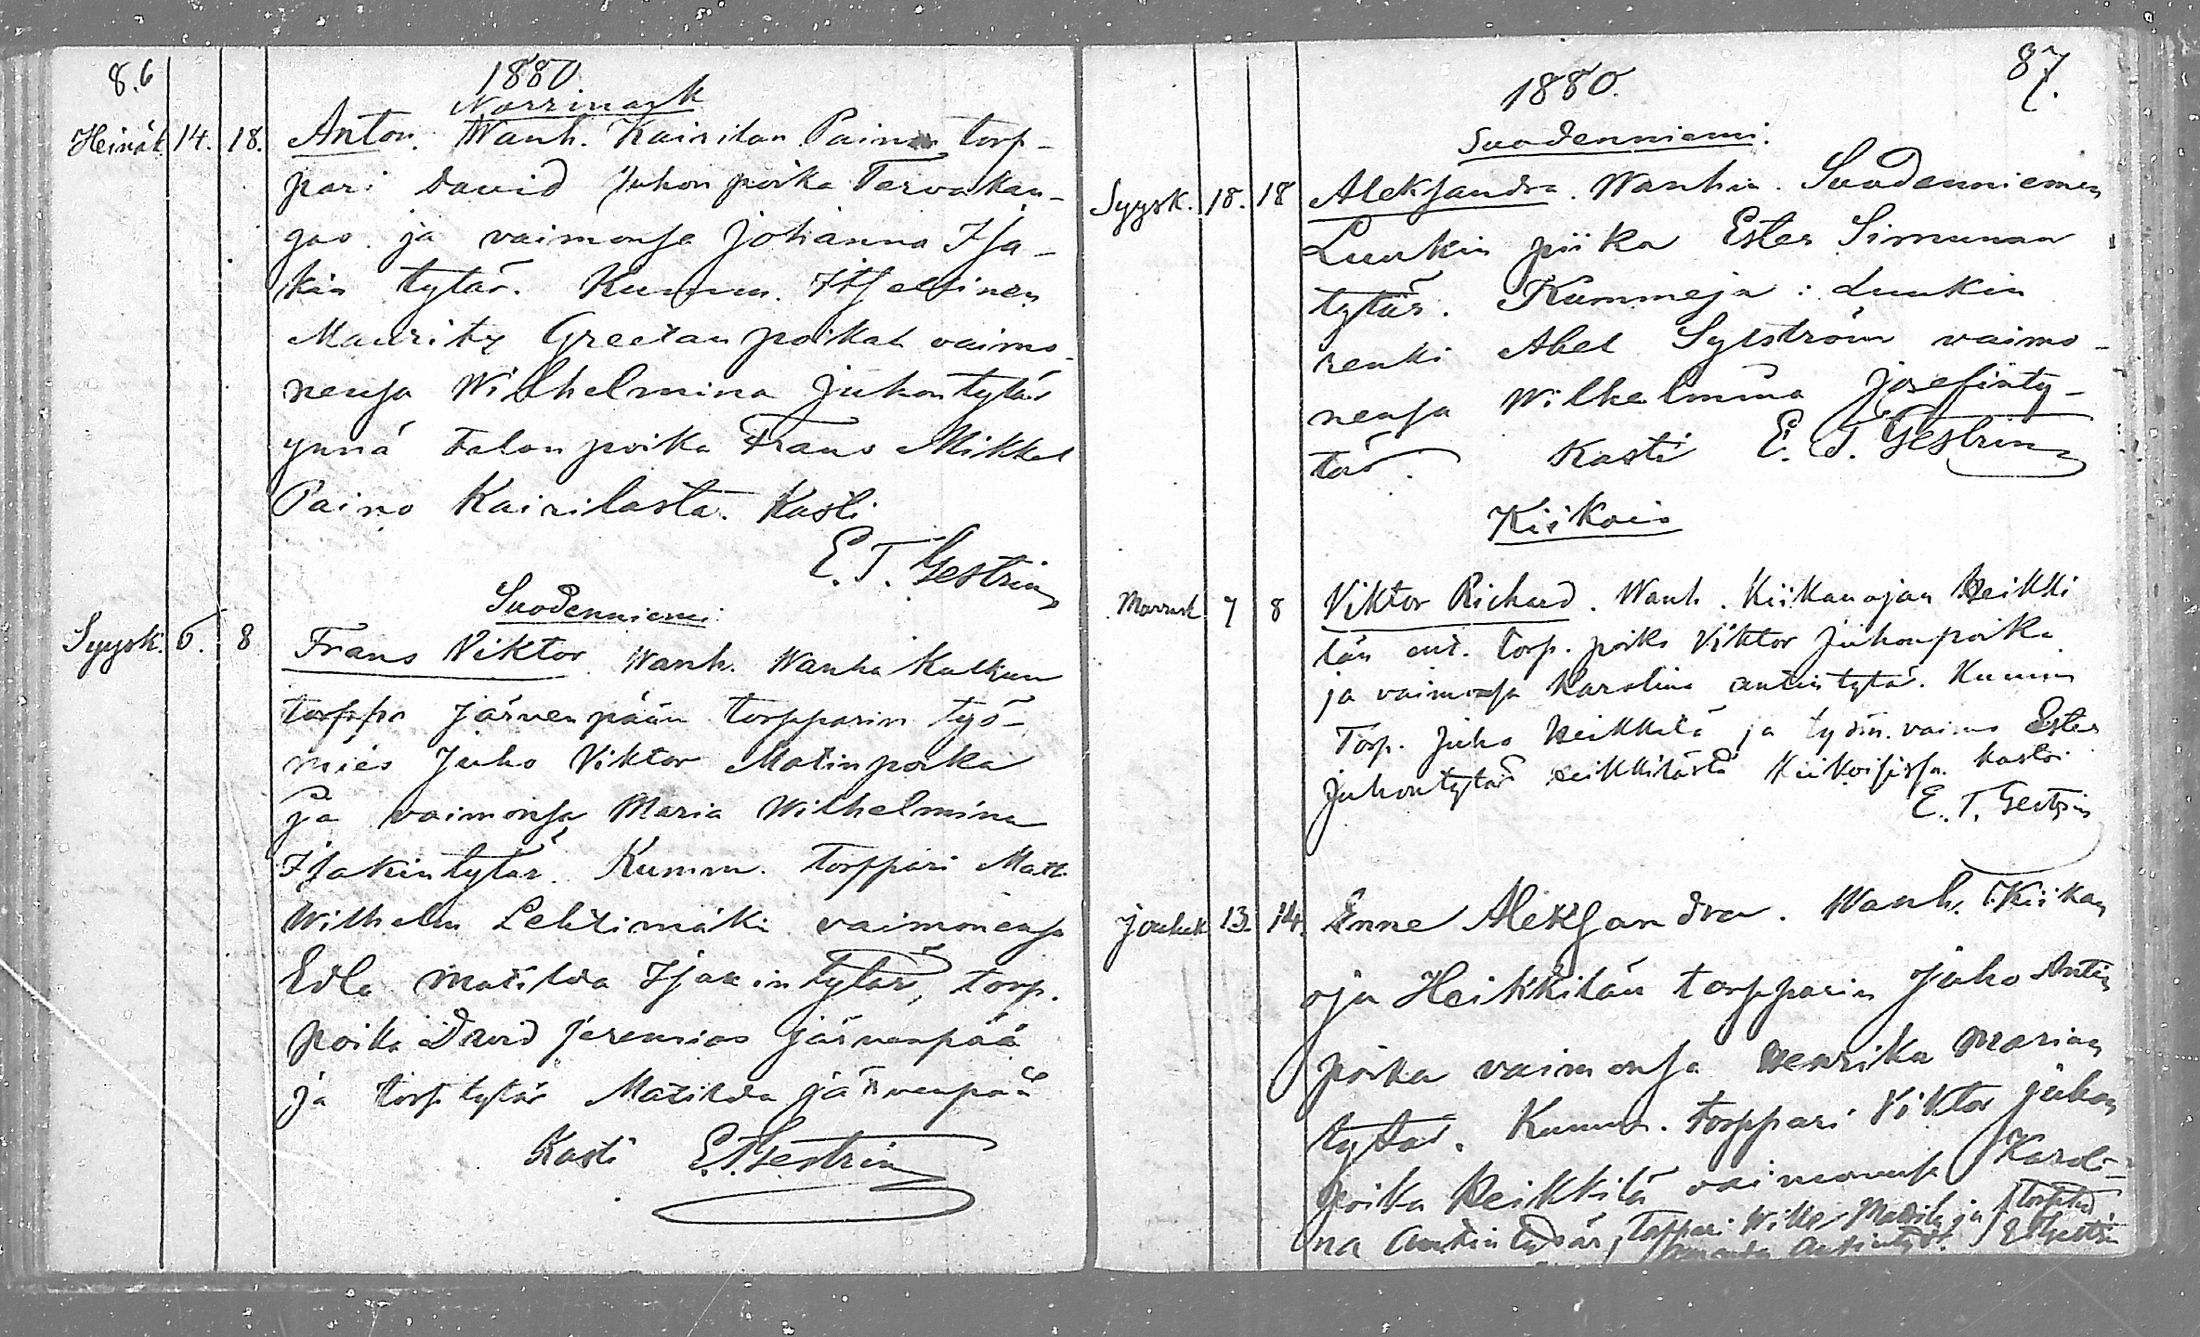 8.6
1880
Norrmark
Heinäk. 14. 18. Anton. Wanh. Kairilan Painon torp-
pari David Juhonpoika Tervakan-
gas ja vaimonsa Johanna Isa-
kin tytär. Kumm. Itsellinen
Mauritz Greelanpoikah vaimo-
nensa Wilhelmina Juhontytär
ynnä talonpoika Frans Mikkel
Paino Kairilasta. Kasti
E. T. Gestrin
Suodenniemi
Syysk. 6. 8 Frans Viktor Wanh. Wanha Kulkun
torppa Järvenpään torpparin työ-
mies Juho Viktor Matinpoika
ja vaimonsa Maria Wilhelmina
Isakintytär. Kumm. torppari Matt.
Wilhelm Lehtimäki vaimonensa
Edla Matilda Isakintytär, torp.
poika David Jeremias Järvenpää
ja torp tytär Matilda Järvenpää
Kasti E. T. Gestrin
87.
1880.
Suodenniemi.
Syysk. 18. 18 Aleksandra. Wanhin. Suodenniemen
Luukin piika Ester Simunan
tytär. Kummeja: Luukin
renki Abel Sylström vaimo-
nensa Wilhelmina Josefinty-
tär. Kasti E. T. Gestrin
Kiikois
Marrask. 7 8 Viktor Richard. Wanh. Kiikanojan Heikki
län ent. torp. poika Viktor Juhonpoika
ja vaimonsa Karolina Antintytär. Kumm
Torp. Juho Heikkilä ja työm. vaimo Ester
Juhontytär Heikkilästä Kiikoisissa. Kastoi
E. T. Gestrin
Jouluk. 13. 14. Enne Aleksandra. Wanh. Kiikan
oja Heikkilän torpparin Juho Antin
poika vaimonsa Henrika Marian
tytär. Kumm. torppari Viktor Juhon
poika Heikkilä vaimonensa Karoli-
na Antintytär, Torppari Wille Mattila ja
Amanda Antintyt. E T Gestrin